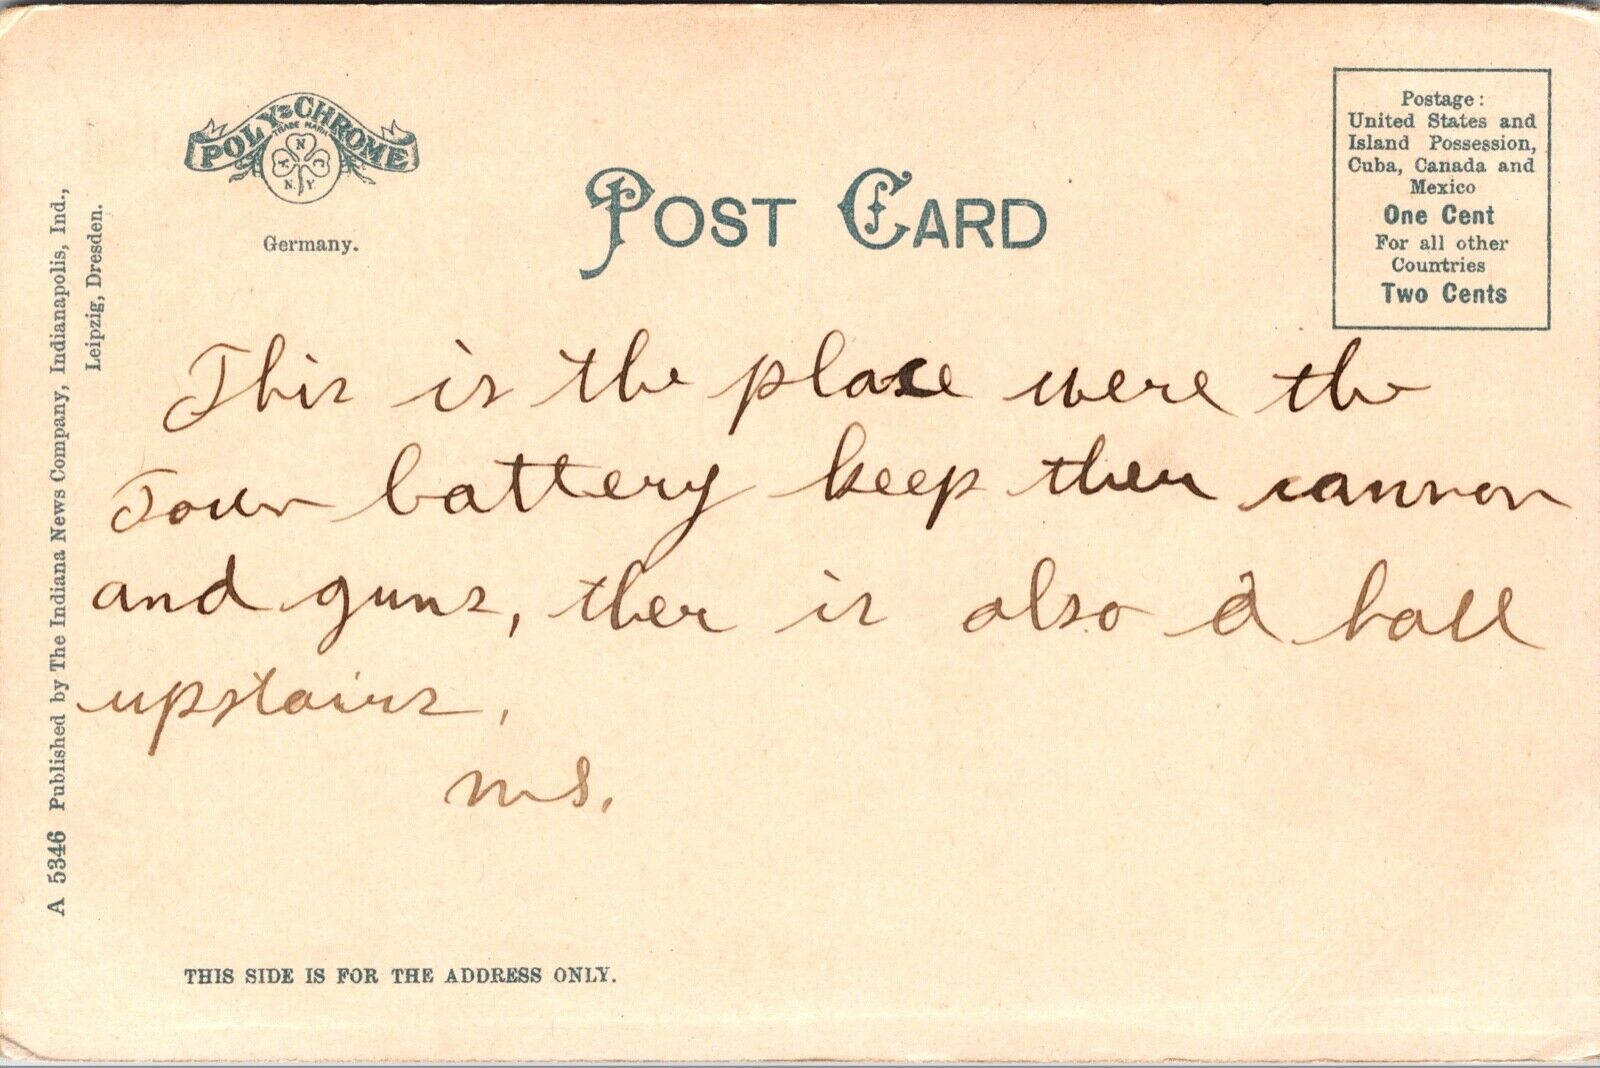 POLY-CHROME
TRADE MARK
N
A C
N. Y
Germany.
POST CARD
Postage:
United States and
Island Possession,
Cuba, Canada and
Mexico
One Cent
For all other
Countries
Two Cents
A 5346 Published by The Indiana News Company, Indianapolis, Ind.,
Leipzig, Dresden.
This is the place were the
Town battery keep ther cannon
and guns, ther is also a hall
upstairs.
THIS SIDE IS FOR THE ADDRESS ONLY.